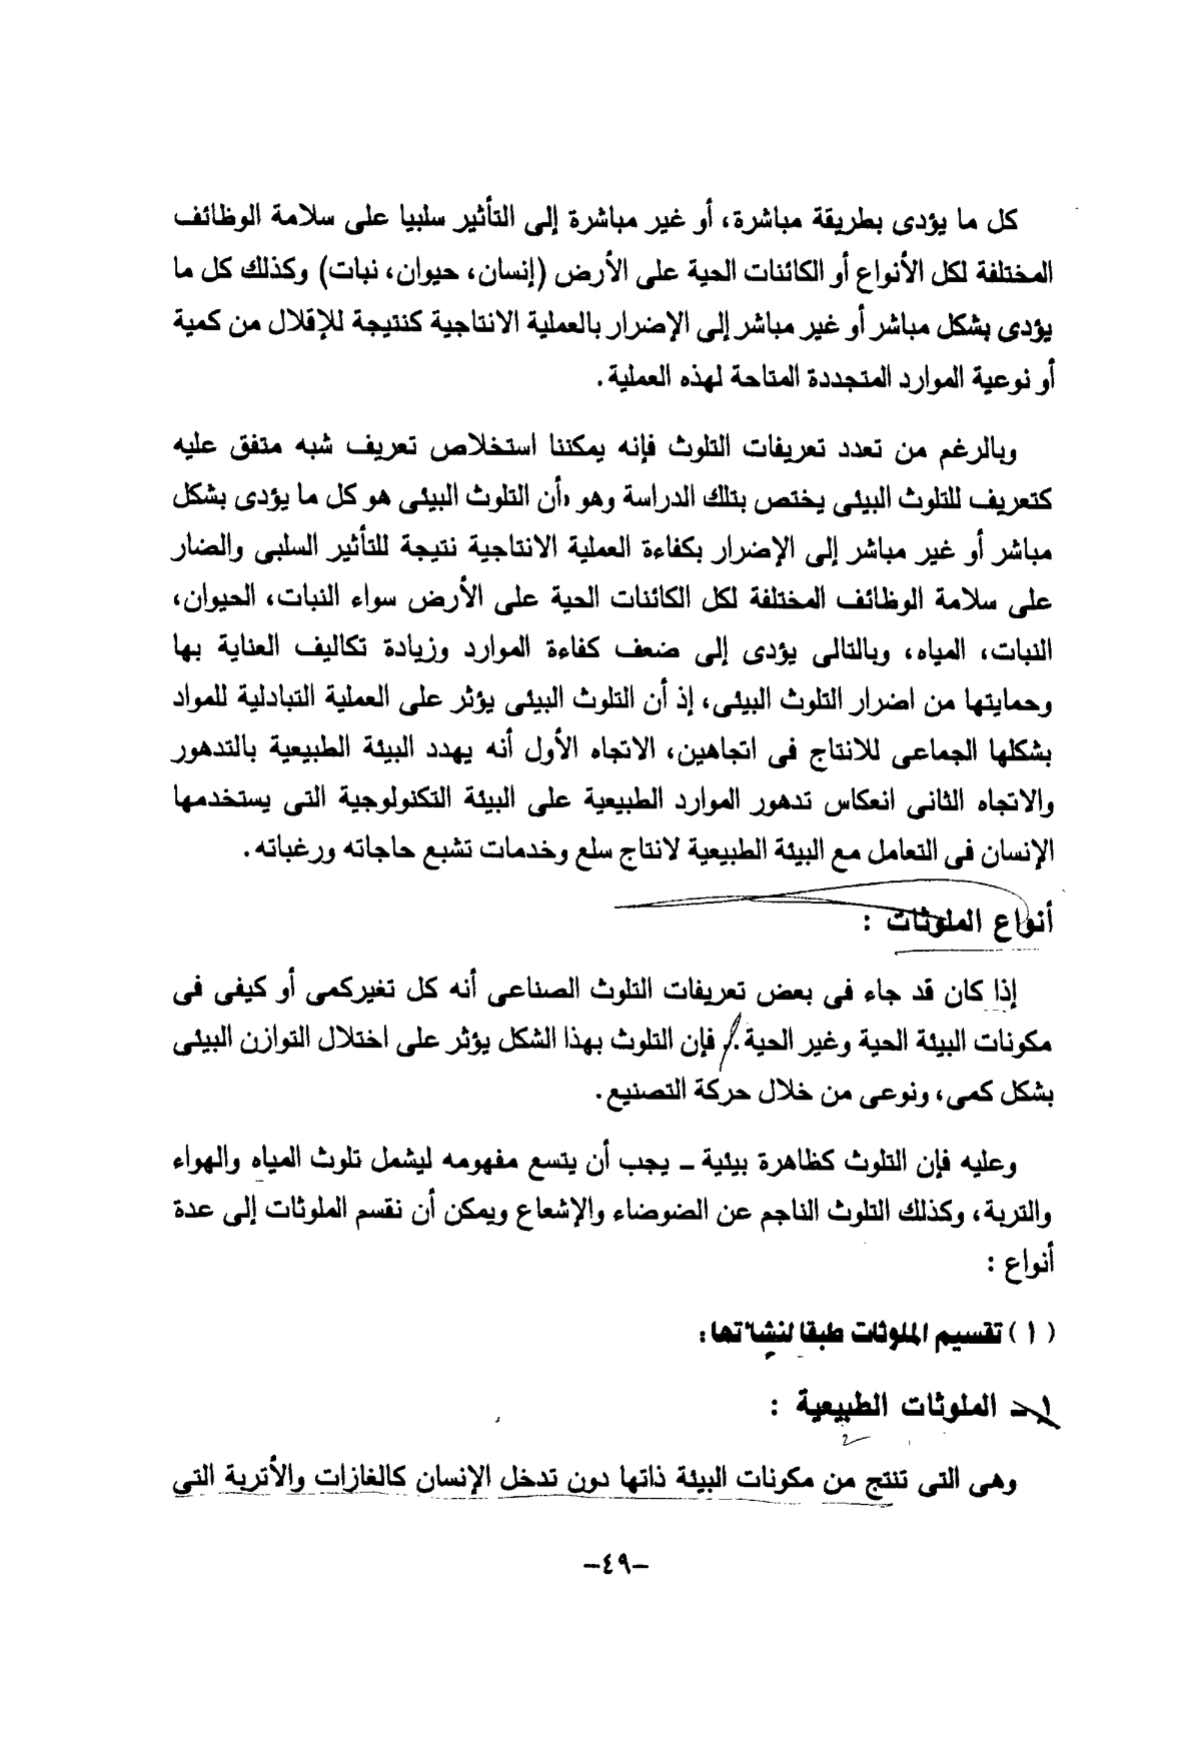 كل ما يؤدى بطريقة مباشرة، أو غير مباشرة إلى التأثير سلبيا على سلامة الوظائف
المختلفة لكل الأنواع أو الكائنات الحية على الأرض (إنسان، حيوان، نبات) وكذلك كل ما
يؤدى بشكل مباشر أو غير مباشر إلى الإضرار بالعملية الانتاجية كنتيجة للإقلال من كمية
أو نوعية الموارد المتجددة المتاحة لهذه العملية.
وبالرغم من تعدد تعريفات التلوث فإنه يمكننا استخلاص تعريف شبه متفق عليه
كتعريف للتلوث البيئى يختص بتلك الدراسة وهو «أن التلوث البيئى هو كل ما يؤدى بشكل
مباشر أو غير مباشر إلى الإضرار بكفاءة العملية الانتاجية نتيجة للتأثير السلبى والضار
على سلامة الوظائف المختلفة لكل الكائنات الحية على الأرض سواء النبات، الحيوان،
النبات، المياه، وبالتالى يؤدى إلى ضعف كفاءة الموارد وزيادة تكاليف العناية بها
وحمايتها من اضرار التلوث البيئى، إذ أن التلوث البيئى يؤثر على العملية التبادلية للمواد
بشكلها الجماعى للانتاج فى اتجاهين، الاتجاه الأول أنه يهدد البيئة الطبيعية بالتدهور
والاتجاه الثانى انعكاس تدهور الموارد الطبيعية على البيئة التكنولوجية التى يستخدمها
الإنسان فى التعامل مع البيئة الطبيعية لانتاج سلع وخدمات تشبع حاجاته ورغباته.
أنواع الملوثات :
إذا كان قد جاء فى بعض تعريفات التلوث الصناعى أنه كل تغيركمى أو كيفى فى
مكونات البيئة الحية وغير الحية. فإن التلوث بهذا الشكل يؤثر على اختلال التوازن البيئى
بشكل كمى، ونوعى من خلال حركة التصنيع.
وعليه فإن التلوث كظاهرة بيئية - يجب أن يتسع مفهومه ليشمل تلوث المياه والهواء
والتربة، وكذلك التلوث الناجم عن الضوضاء والإشعاع ويمكن أن نقسم الملوثات إلى عدة
أنواع :
(١) تقسيم الملوثات طبقا لنشأتها:
١- الملوثات الطبيعية :
وهى التى تنتج من مكونات البيئة ذاتها دون تدخل الإنسان كالغازات والأتربة التى
-٤٩-